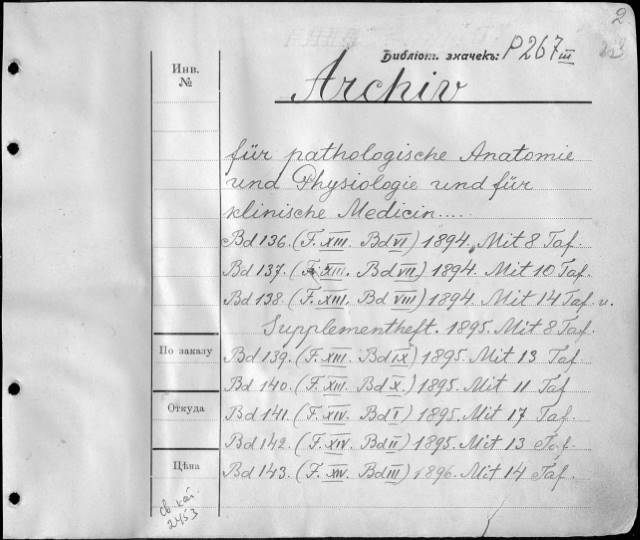 2
Библіот. значекъ: P267 III
Инв. №
Archiv
für pathologische Anatomie
und Physiologie und für
klinische Medicin....
Bd 136. (F. XIII. Bd VI) 1894. Mit 8 Taf.
Bd 137. (F. XIII. Bd VII) 1894. Mit 10 Taf.
Bd 138. (F. XIII. Bd VIII) 1894. Mit 14 Taf. u.
Supplementheft. 1895. Mit 8 Taf.
По заказу
Bd 139. (F. XIII. Bd IX) 1895. Mit 13 Taf
Bd 140. (F. XIII. Bd X.) 1895. Mit 11 Taf
Откуда
Bd 141. (F. XIV. Bd I) 1895. Mit 17 Taf.
Bd 142. (F. XIV. Bd II) 1895. Mit 13 Taf.
Цѣна
Bd 143. (F. XIV. Bd III) 1896. Mit 14 Taf.
св. кат.
2453